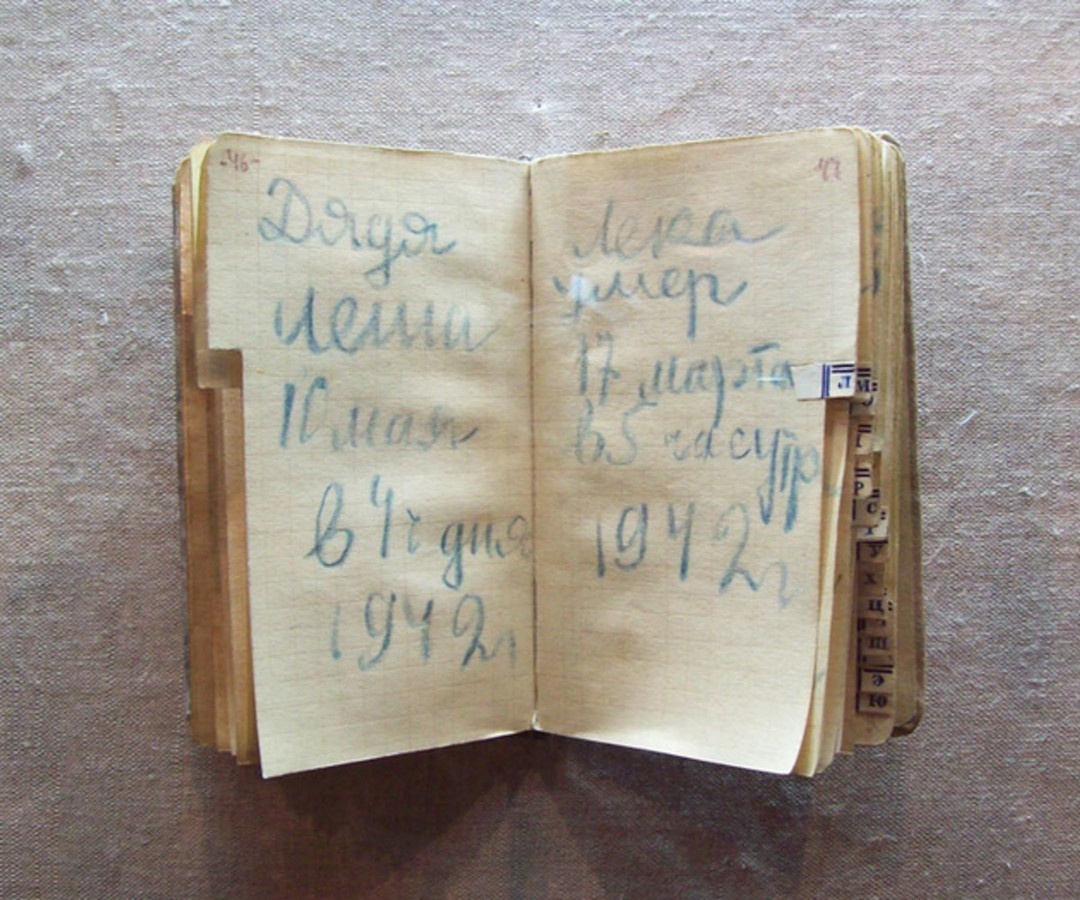 -46-
Дядя
Леша
10 мая
в 4 ч дня
1942 г
47
Лека
умер
17 марта
в 5 часутр
1942 г
Л
М
Р
С
Т
У
Х
Ц
Ш
Э
Ю